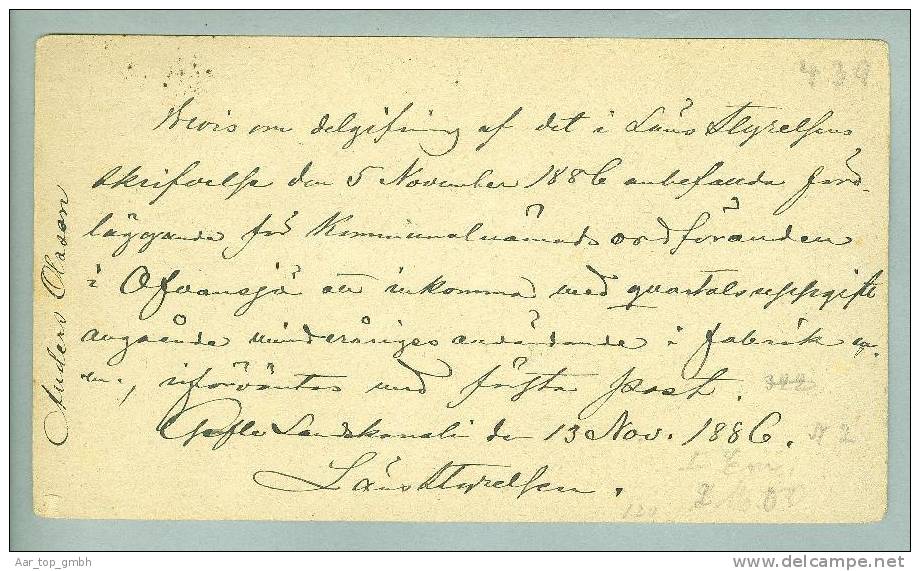 439
Bevis om delgifning af det i Läns Styrelsens
skrifvelse den 5 November 1886 anbefallda före-
läggande för Kommunalnämnds ordföranden
i Ofvansjö att inkomma med quartalsuppgift
angående minderåriges användande i fabrik m.
m., införväntas med första post. 322
Gefle Landskansli den 13 Nov. 1886.
Läns Styrelsen.
Anders Olsson
Aar_top_gmbh
www.delcampe.net